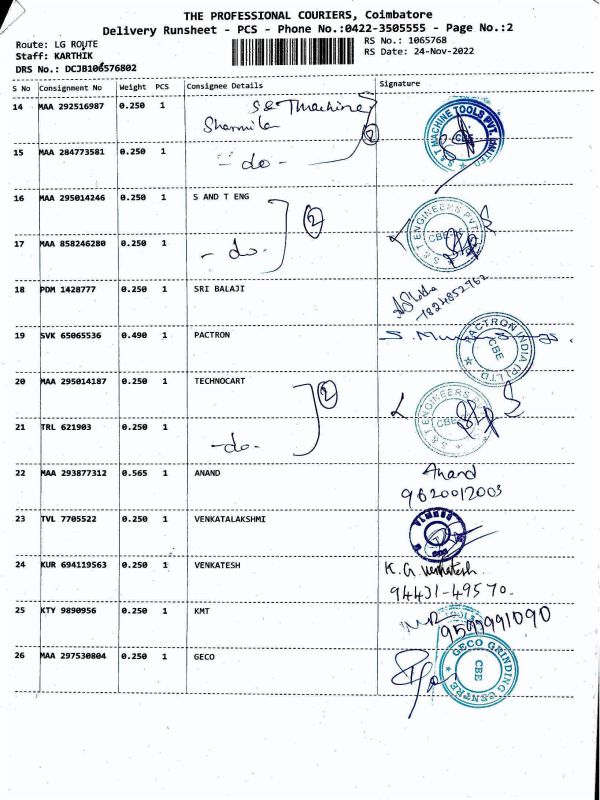 THE PROFESSIONAL COURIERS, Coimbatore
Delivery Runsheet - PCS - Phone No.:0422-3505555 - Page No.:2
Route: LG ROUTE
RS No.: 1065768
Staff: KARTHIK
RS Date: 24-Nov-2022
DRS No.: DCJB106576802
S No Consignment No Weight PCS Consignee Details Signature
14 MAA 292516987 0.250 1 S&T Machine
Sharmila
2
S & T MACHINE TOOLS PVT. LIMITED
CBE
15 MAA 284773581 0.250 1 - do -
16 MAA 295014246 0.250 1 S AND T ENG
2
S & T ENGINEERS PVT
CBE
17 MAA 858246280 0.250 1 - do -
18 PDM 1428777 0.250 1 SRI BALAJI
7824852762
19 SVK 65065536 0.490 1 PACTRON
PACTRON INDIA (P) LTD
CBE
20 MAA 295014187 0.250 1 TECHNOCART
2
S & T ENGINEERS
CBE
21 TRL 621903 0.250 1 -do-
22 MAA 293877312 0.565 1 ANAND Anand
9620012003
23 TVL 7705522 0.250 1 VENKATALAKSHMI
24 KUR 694119563 0.250 1 VENKATESH K.G Venkatesh.
94431-49570.
25 KTY 9890956 0.250 1 KMT
9599991090
26 MAA 297530804 0.250 1 GECO
GECO GRINDING CENTRE
CBE